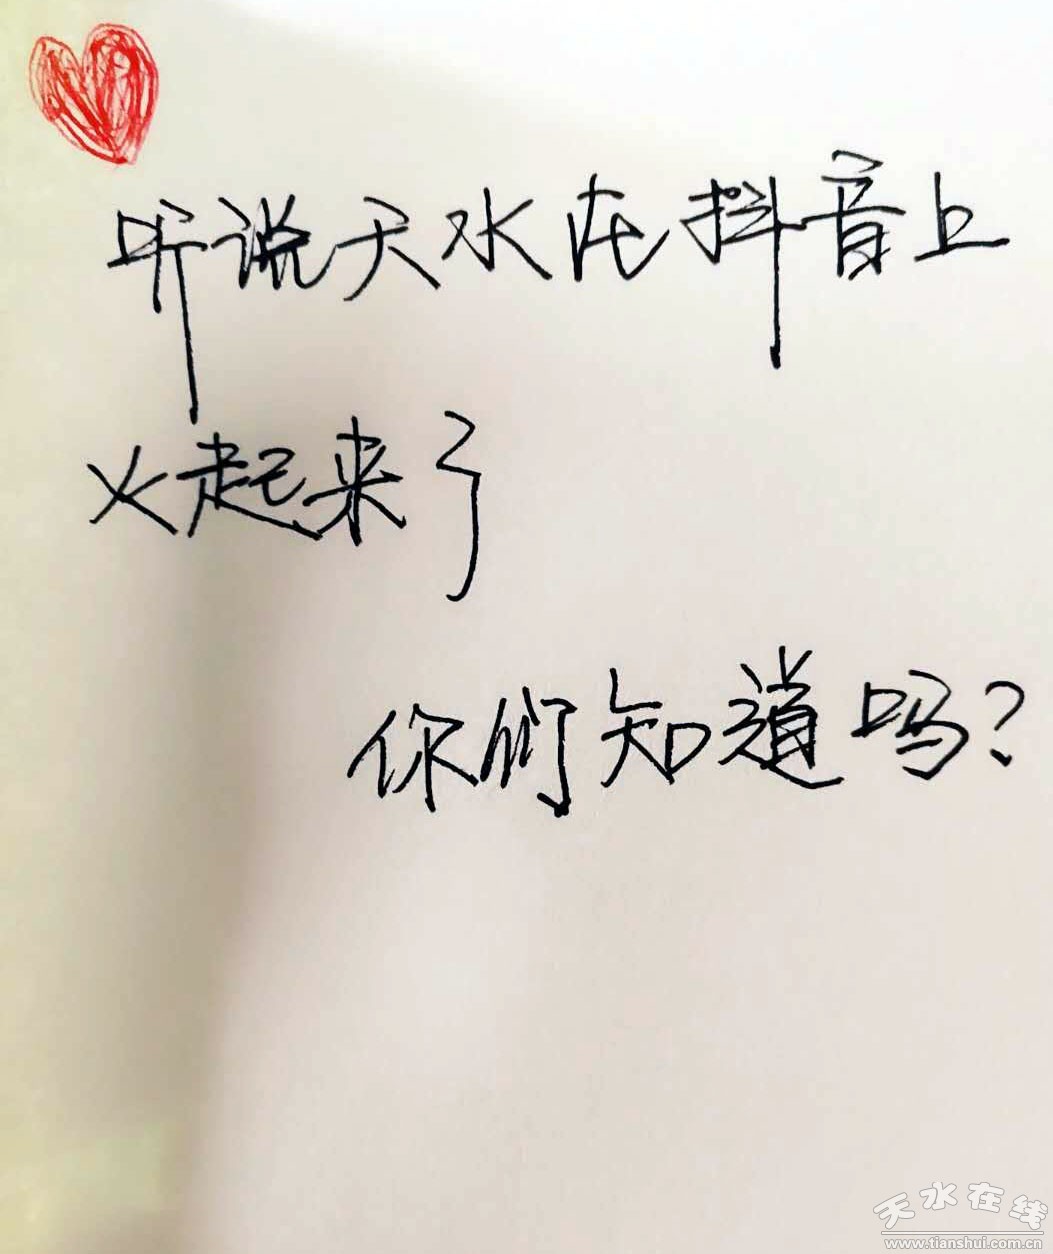 听说天水在抖音上
火起来了
你们知道吗?
天水在线
www.tianshui.com.cn